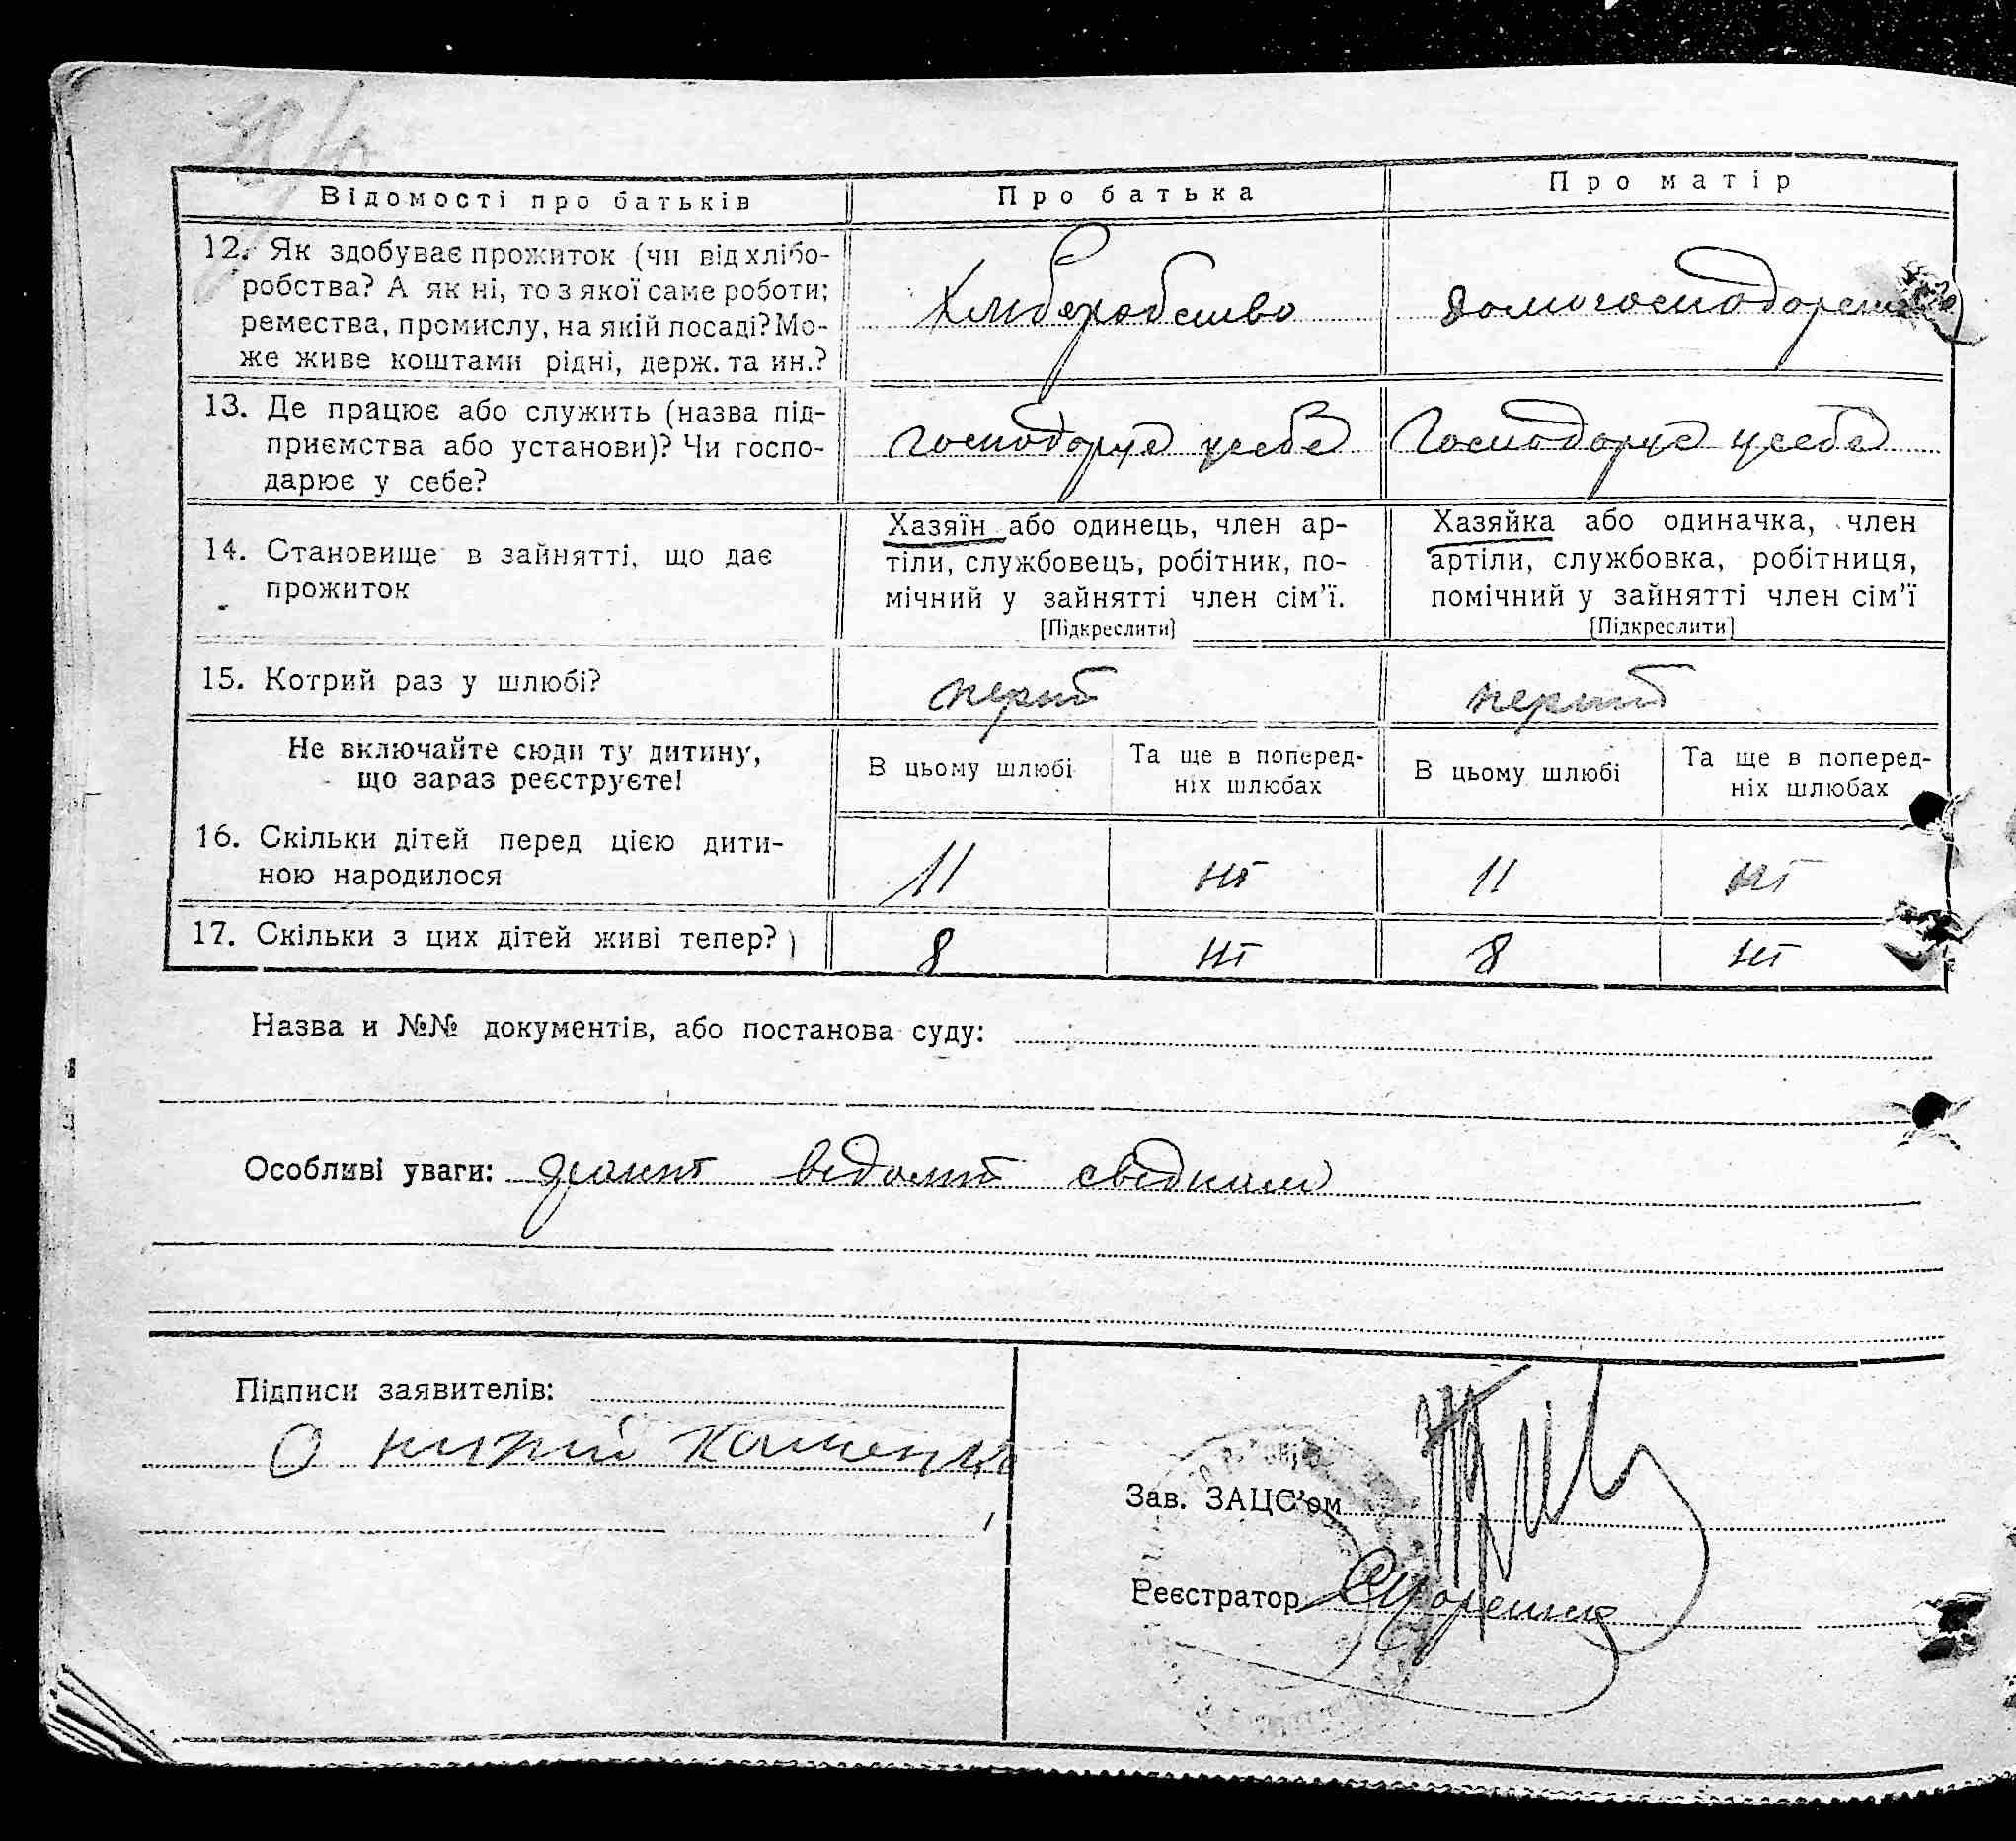 Відомості про батьків
Про батька
Про матір
12. Як здобуває прожиток (чи від хлібо-
робства? А як ні, то з якої саме роботи;
ремества, промислу, на якій посаді? Мо-
же живе коштами рідні, держ. та ин.?
Хліберобство
13. Де працює або служить (назва під-
приємства або установи)? Чи госпо-
дарює у себе?
господарує усебе
Господарує усебе
14. Становище в зайнятті, що дає
прожиток
Хазяїн або одинець, член ар-
тіли, службовець, робітник, по-
мічний у зайнятті член сім'ї.
[Підкреслити]
Хазяйка або одиначка, член
артіли, службовка, робітниця,
помічний у зайнятті член сім'ї
[Підкреслити]
15. Котрий раз у шлюбі?
Не включайте сюди ту дитину,
що зараз реєструєте!
В цьому шлюбі
Та ще в поперед-
ніх шлюбах
В цьому шлюбі
Та ще в поперед-
ніх шлюбах
16. Скільки дітей перед цією дити-
ною народилося
11
ні
11
ні
17. Скільки з цих дітей живі тепер?
8
ні
8
ні
Назва и №№ документів, або постанова суду:
Особливі уваги:
Підписи заявителів:
Зав. ЗАЦС'ом
Реєстратор